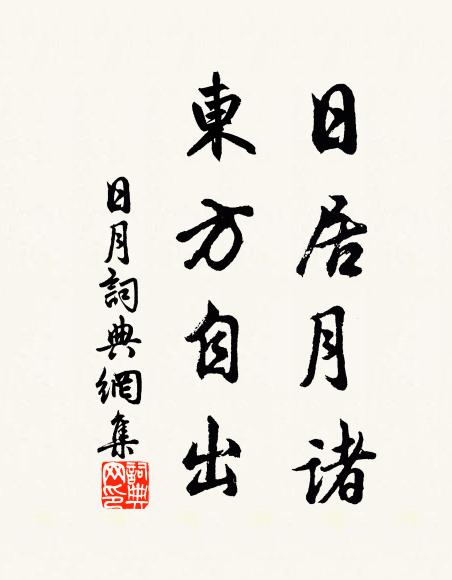 日居月諸
東方自出
日月詞典網集
詞典网印